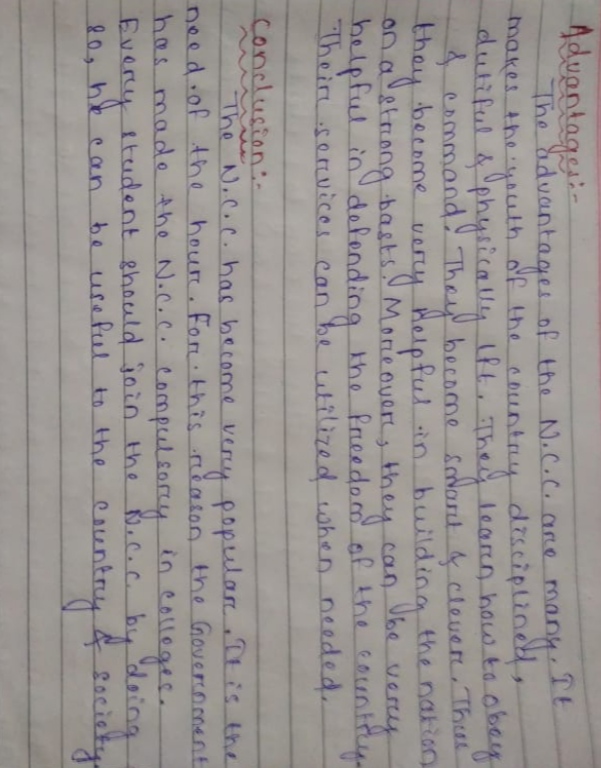 Advantages:-
The advantages of the N.C.C. are many. It
makes the youth of the country disciplined,
dutiful & physically fit. They learn how to obey
& command. They become smart & clever. Thus
they become very helpful in building the nation
on a strong basis. Moreover, they can be very
helpful in defending the freedom of the country.
Their services can be utilized when needed.
Conclusion:-
The N.C.C. has become very popular. It is the
need of the hour. For this reason the Government
has made the N.C.C. compulsory in colleges.
Every student should join the N.C.C. by doing
so, he can be useful to the country & society.